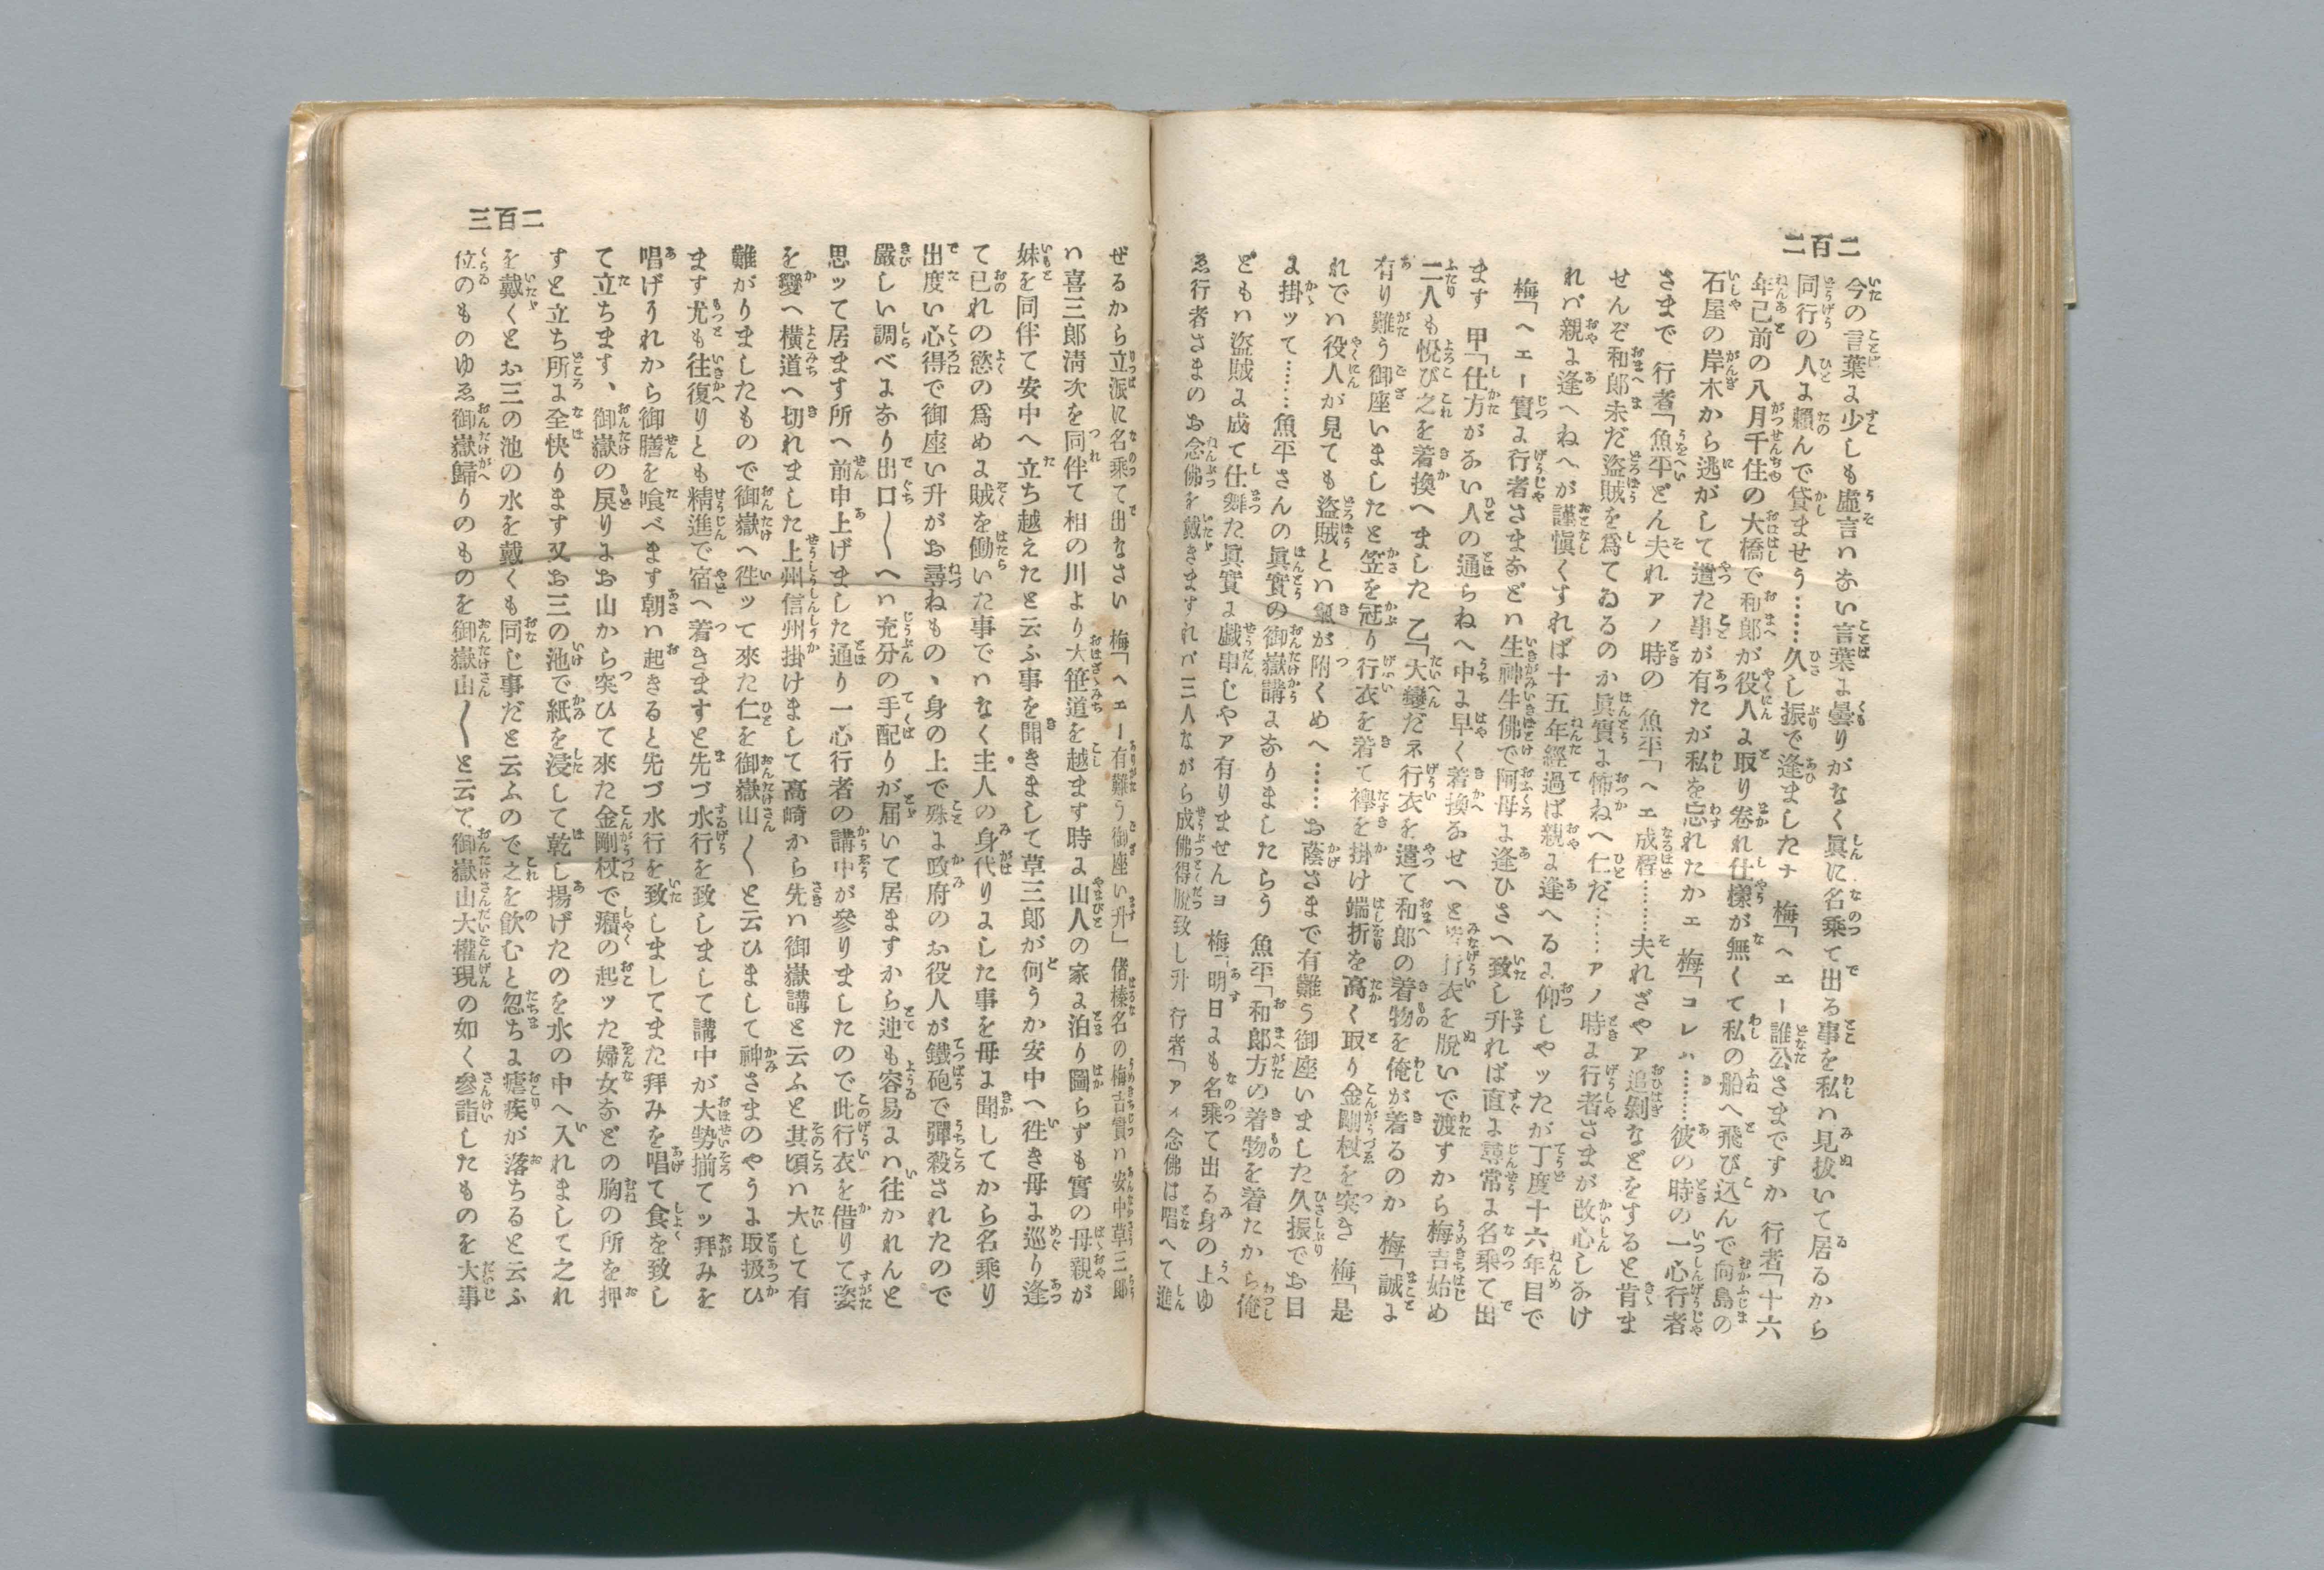 二百二
今の言葉に少しも虚言ハない言葉に曇りがなく眞に名乗て出る事を私ハ見抜いて居るから
同行の人に賴んで貸ませう……久し振で逢ましたナ 梅「ヘエー誰公さまですか 行者「十六
年己前の八月千住の大橋で和郎が役人に取り卷れ仕樣が無くて私の船へ飛び込んで向島の
石屋の岸木から逃がして遣た事が有たが私を忘れたかエ 梅「コレハ……彼の時の一心行者
さまで 行者「魚平どん夫れアノ時の 魚平「ヘエ成程………夫れぢやア追剝などをすると肯ま
せんぞ和郎未だ盜賊を爲てゐるのか眞實に怖ねへ仁だ……アノ時に行者さまが改心しなけ
れバ親に逢へねへが謹愼くすれば十五年經過ば親に逢へるに仰しやッたが丁度十六年目で
梅「ヘエー實に行者さまなどハ生神生佛で阿母に逢ひさへ致し升れば直に尋常に名乗て出
ます 甲「仕方がない人の通らねへ中に早く着換なせへと行衣を脫いで渡すから梅吉始め
二人も悅び之を着換へました 乙「大變だネ行衣を遣て和郎の着物を俺が着るのか 梅「誠に
有り難う御座いましたと笠を冠り行衣を着て襷を掛け端折を高く取り金剛杖を突き 梅「是
れでハ役人が見ても盜賊とハ氣が附くめへ……お蔭さまで有難う御座いました久振でお目
に掛ッて……魚平さんの眞實の御嶽講になりましたらう 魚平「和郎方の着物を着たから俺
どもハ盜賊に成て仕舞た眞實に戯串じやア有りませんヨ 梅「明日にも名乗て出る身の上ゆ
ゑ行者さまのお念佛を戴きますれバ三人ながら成佛得脫致し升 行者「アィ念佛は唱へて進
三百二
ぜるから立派に名乗て出なさい 梅「ヘエー有難う御座い升」偖榛名の梅吉實ハ安中草三郎
ハ喜三郎淸次を同伴て相の川より大笹道を越ます時に山人の家に泊り圖らずも實の母親が
妹を同伴て安中へ立ち越えたと云ふ事を聞きまして草三郎が何うか安中へ徃き母に巡り逢
て已れの慾の爲めに賊を働いた事でハなく主人の身代りにした事を母に聞してから名乗り
出度い心得で御座い升がお尋ねもの、身の上で殊に政府のお役人が鐵砲で彈殺されたので
嚴しい調べになり出口〱へハ充分の手配りが届いて居ますから迚も容易にハ往かれんと
思ッて居ます所へ前申上げました通り一心行者の講中が參りましたので此行衣を借りて姿
を變へ橫道へ切れました上州信州掛けまして高崎から先ハ御嶽講と云ふと其頃ハ大して有
難がりましたもので御嶽へ徃ッて來た仁を御嶽山〱と云ひまして神さまのやうに取扱ひ
ます尤も往復りとも精進で宿へ着きますと先づ水行を致しまして講中が大勢揃てッ拜みを
唱げうれから御膳を喰べます朝ハ起きると先づ水行を致しましてまた拜みを唱て食を致し
て立ちます、御嶽の戻りにお山から突ひて來た金剛杖で癪の起ッた婦女などの胸の所を押
すと立ち所に全快ります又お三の池で紙を浸して乾し揚げたのを水の中へ入れまして之れ
を戴くとお三の池の水を戴くも同じ事だと云ふので之を飮むと忽ちに瘧疾が落ちると云ふ
位のものゆゑ御嶽歸りのものを御嶽山〱と云て御嶽山大權現の如く參詣したものを大事